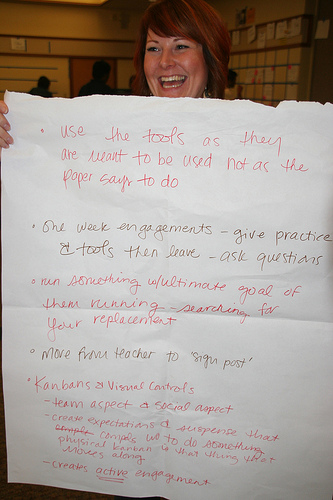 • use the tools as they
are meant to be used not as the
paper says to do
• one week engagements - give practice
& tools then leave - ask questions
• run something w/ultimate goal of
them running - searching for
your replacement
• move from teacher to 'sign post'
• Kanbans & Visual Controls
- team aspect & social aspect
- create expectations & suspense that
compels us to do something
physical kanban is that thing that
moves along
- creates active engagement